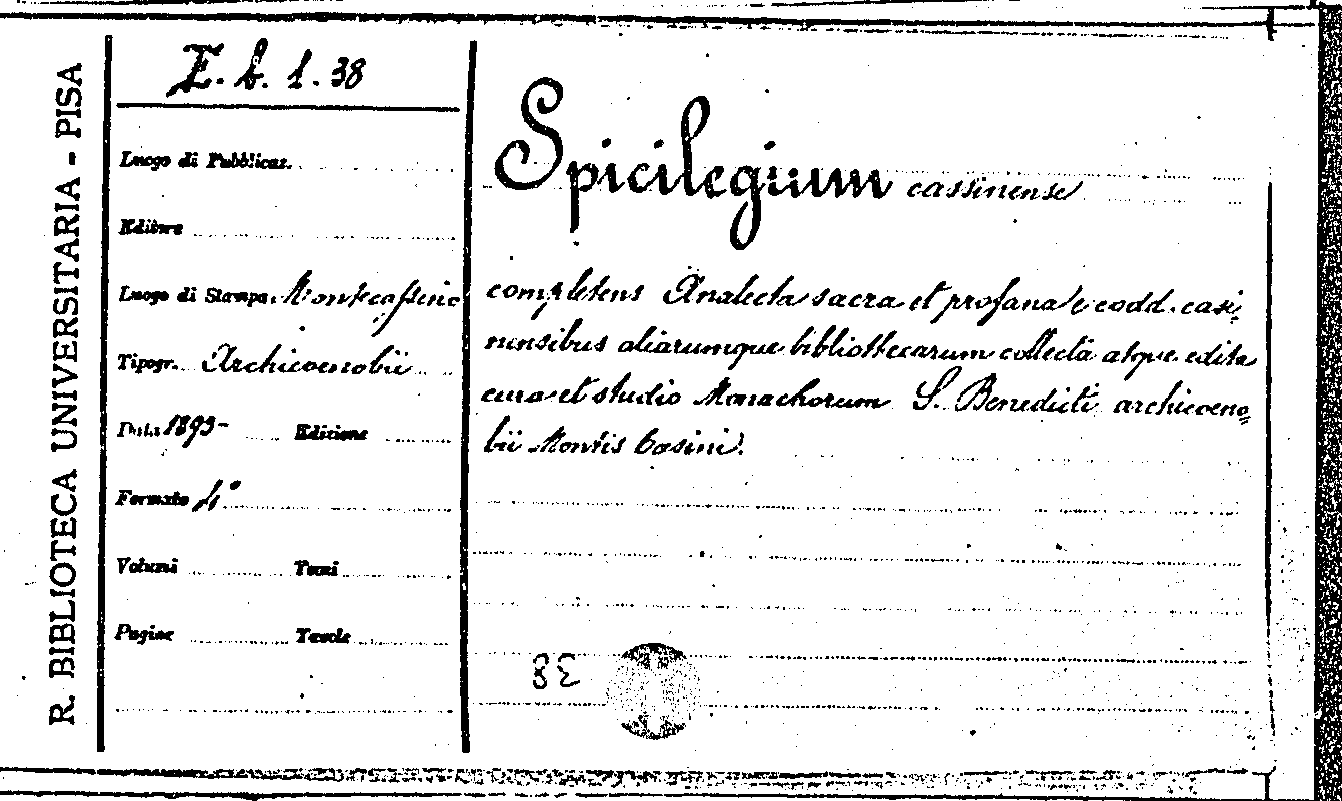 R. BIBLIOTECA UNIVERSITARIA - PISA
E. b. 1. 38
Luogo di Pubblicaz.
Editore
Luogo di Stampa. Montecassino
Tipogr. Archicoenobii
Data 1893- Edizione
Formato 4°
Volumi Tomi
Pagine Tavole
Spicilegium cassinense
complectens Analecta sacra et profana e codd. casi-
nensibus aliarumque bibliothecarum collecta atque edita
cura et studio Monachorum S. Benedicti archicoeno-
bii Montis Casini.